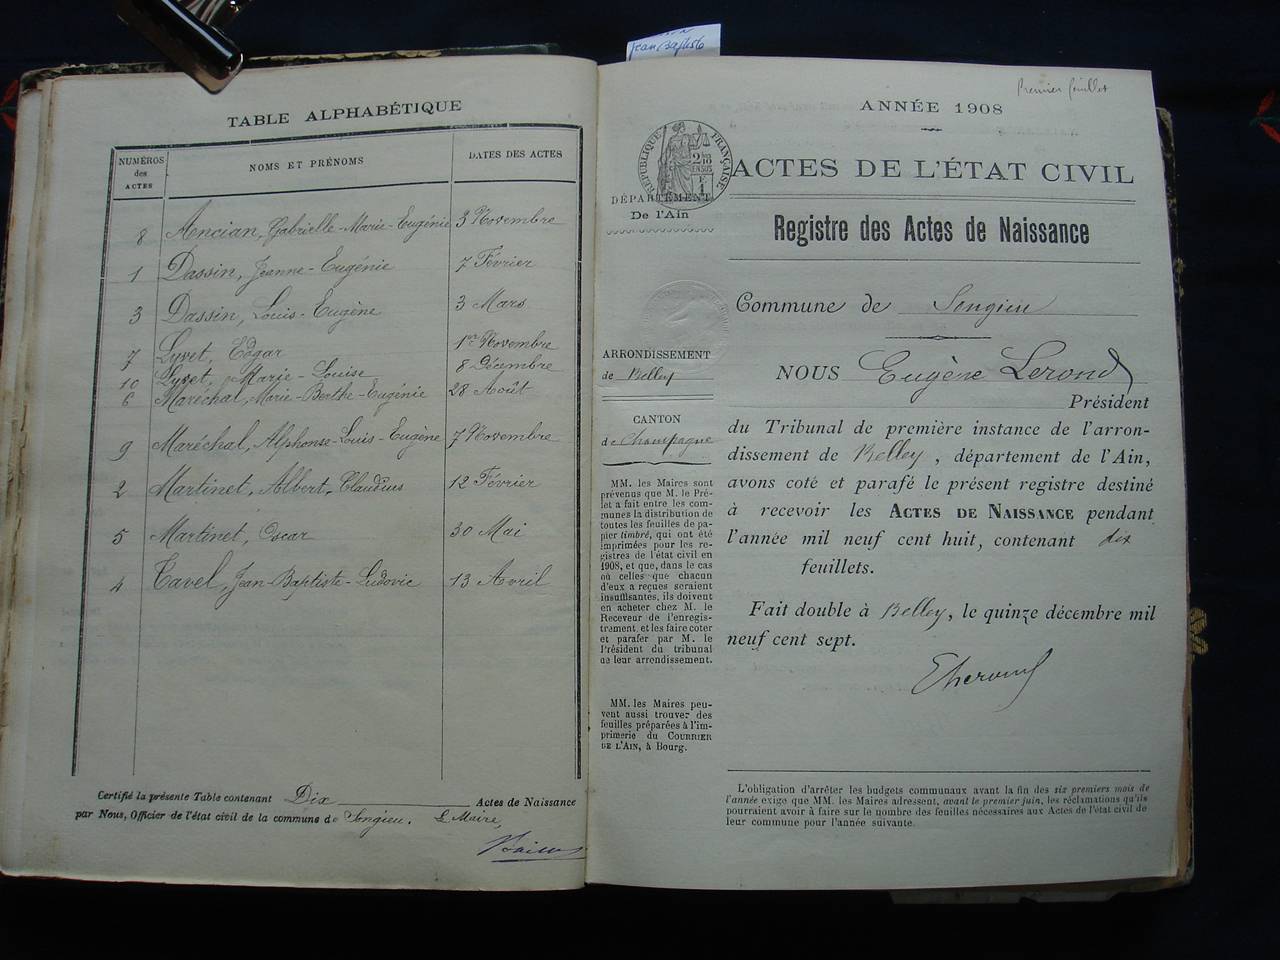 Jean Baptiste
TABLE ALPHABÉTIQUE
NUMÉROS des ACTES
NOMS ET PRÉNOMS
DATES DES ACTES
8 Ancian, Gabrielle-Marie-Eugénie 3 Novembre
1 Dassin, Jeanne-Eugénie 7 Février
3 Dassin, Louis-Eugène 3 Mars
7 Lyvet, Edgar 1er Novembre
10 Lyvet, Marie-Louise 8 Décembre
6 Maréchal, Marie-Berthe-Eugénie 28 Août
9 Maréchal, Alphonse-Louis-Eugène 7 Novembre
2 Martinet, Albert-Claudius 12 Février
5 Martinet, Oscar 30 Mai
4 Tavel, Jean-Baptiste-Ludovic 13 Avril
Certifié la présente Table contenant Dix Actes de Naissance
par Nous, Officier de l'état civil de la commune de Songieu. Le Maire,
Premier feuillet
ANNÉE 1908
RÉPUBLIQUE FRANÇAISE
ACTES DE L'ÉTAT CIVIL
DÉPARTEMENT
De l'Ain
Registre des Actes de Naissance
Commune de Songieu
ARRONDISSEMENT
de Belley
CANTON
de Champagne
MM. les Maires sont
prévenus que M. le Pré-
let a fait entre les com-
munes la distribution de
toutes les feuilles de pa-
pier timbré, qui ont été
imprimées pour les re-
gistres de l'état civil en
1908, et que, dans le cas
où celles que chacun
d'eux a reçues seraient
insuffisantes, ils doivent
en acheter chez M. le
Receveur de l'enregis-
trement, et les faire coter
et parafer par M. le
Président du tribunal
de leur arrondissement.
MM. les Maires peu-
vent aussi trouver des
feuilles préparées à l'im-
primerie du COURRIER
DE L'AIN, à Bourg.
NOUS Eugène Lerond
Président
du Tribunal de première instance de l'arron-
dissement de Belley, département de l'Ain,
avons coté et parafé le présent registre destiné
à recevoir les ACTES DE NAISSANCE pendant
l'année mil neuf cent huit, contenant dix
feuillets.
Fait double à Belley, le quinze décembre mil
neuf cent sept.
L'obligation d'arrêter les budgets communaux avant la fin des six premiers mois de
l'année exige que MM. les Maires adressent, avant le premier juin, les réclamations qu'ils
pourraient avoir à faire sur le nombre des feuilles nécessaires aux Actes de l'état civil de
leur commune pour l'année suivante.